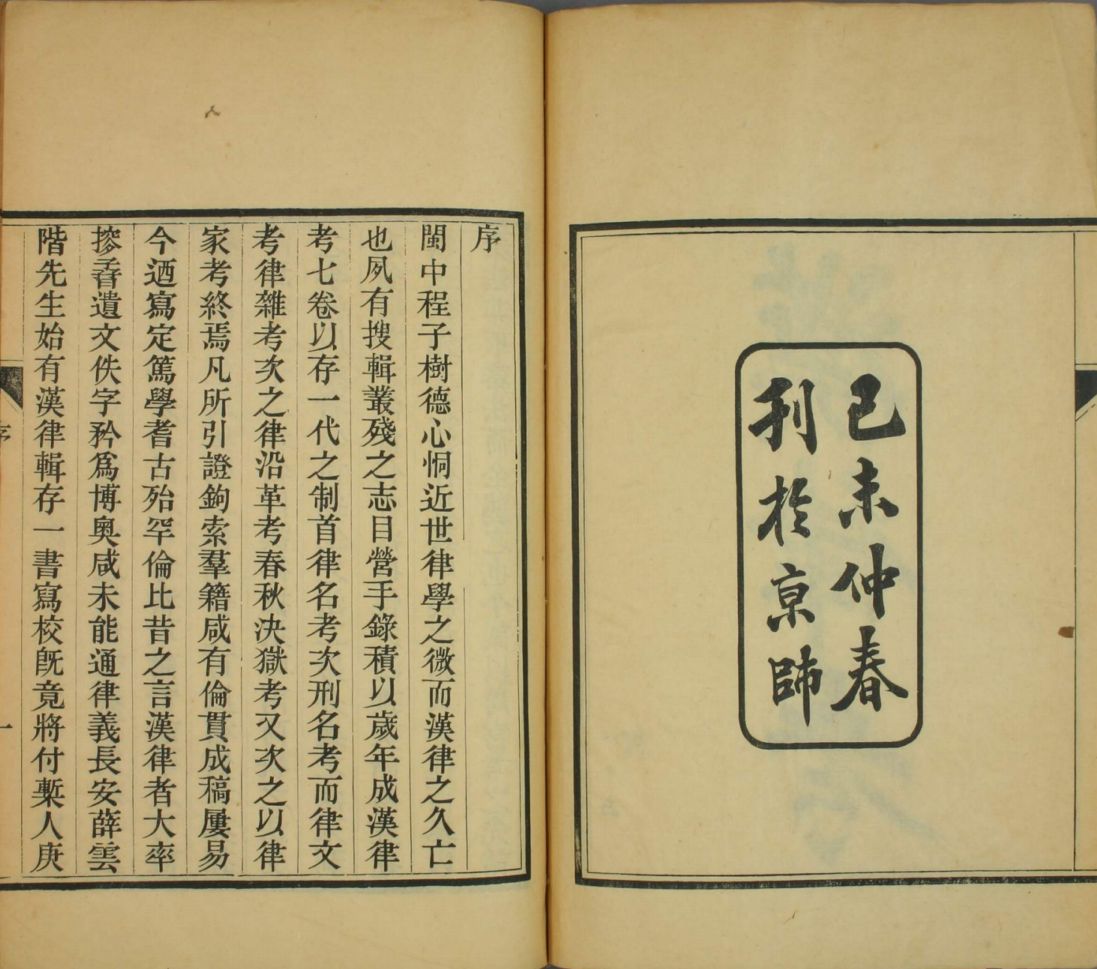 己未仲春
刊於京師
序
閩中程子樹德心恫近世律學之微而漢律之久亡
也夙有搜輯叢殘之志目營手錄積以歲年成漢律
考七卷以存一代之制首律名考次刑名考而律文
考律雜考次之律沿革考春秋決獄考又次之以律
家考終焉凡所引證鉤索羣籍咸有倫貫成稿屢易
今迺寫定篤學耆古殆罕倫比昔之言漢律者大率
摉遺文佚字矜爲博奧咸未能通律義長安薛雲
階先生始有漢律輯存一書寫校旣竟將付槧人庚
序
一